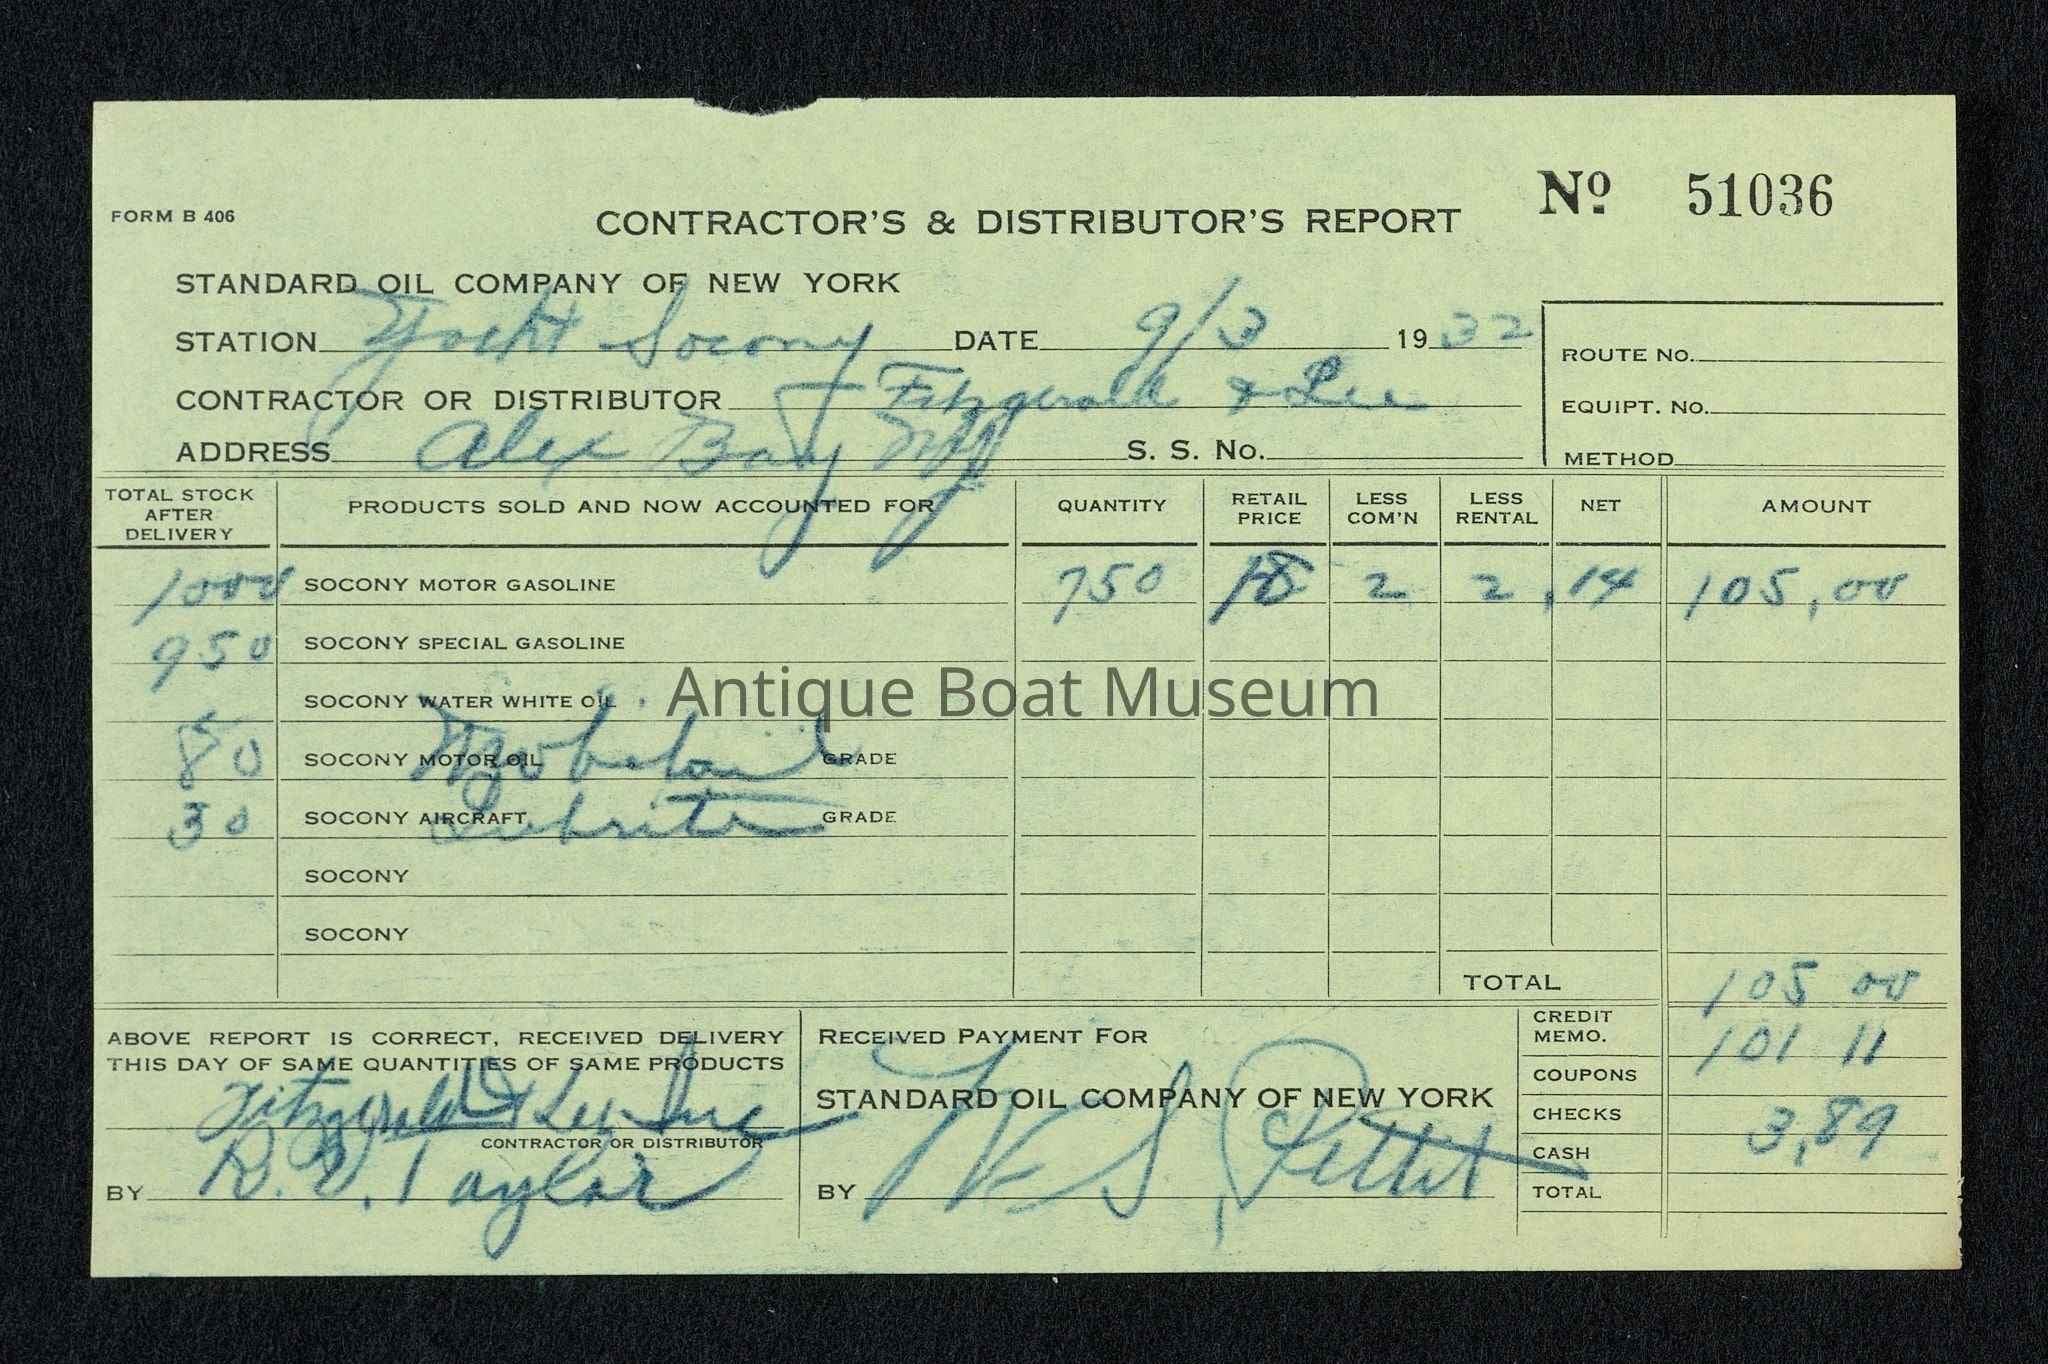 FORM B 406
CONTRACTOR'S & DISTRIBUTOR'S REPORT
Nº 51036
STANDARD OIL COMPANY OF NEW YORK
STATION Yacht Socony DATE 9/3 1932
ROUTE NO.
CONTRACTOR OR DISTRIBUTOR Fitzgerald & Lee
EQUIPT. NO.
ADDRESS Alex Bay NY S. S. No.
METHOD
TOTAL STOCK AFTER DELIVERY PRODUCTS SOLD AND NOW ACCOUNTED FOR QUANTITY RETAIL PRICE LESS COM'N LESS RENTAL NET AMOUNT
1000 SOCONY MOTOR GASOLINE 750 18 2 2 .14 105.00
950 SOCONY SPECIAL GASOLINE
SOCONY WATER WHITE OIL
Antique Boat Museum
80 SOCONY MOTOR OIL GRADE
30 SOCONY AIRCRAFT GRADE
SOCONY
SOCONY
TOTAL 105 00
ABOVE REPORT IS CORRECT, RECEIVED DELIVERY
THIS DAY OF SAME QUANTITIES OF SAME PRODUCTS
Fitzgerald & Lee Inc
CONTRACTOR OR DISTRIBUTOR
BY Taylor
RECEIVED PAYMENT FOR
STANDARD OIL COMPANY OF NEW YORK
BY W S Pettit
CREDIT MEMO. 101 11
COUPONS
CHECKS 3,89
CASH
TOTAL